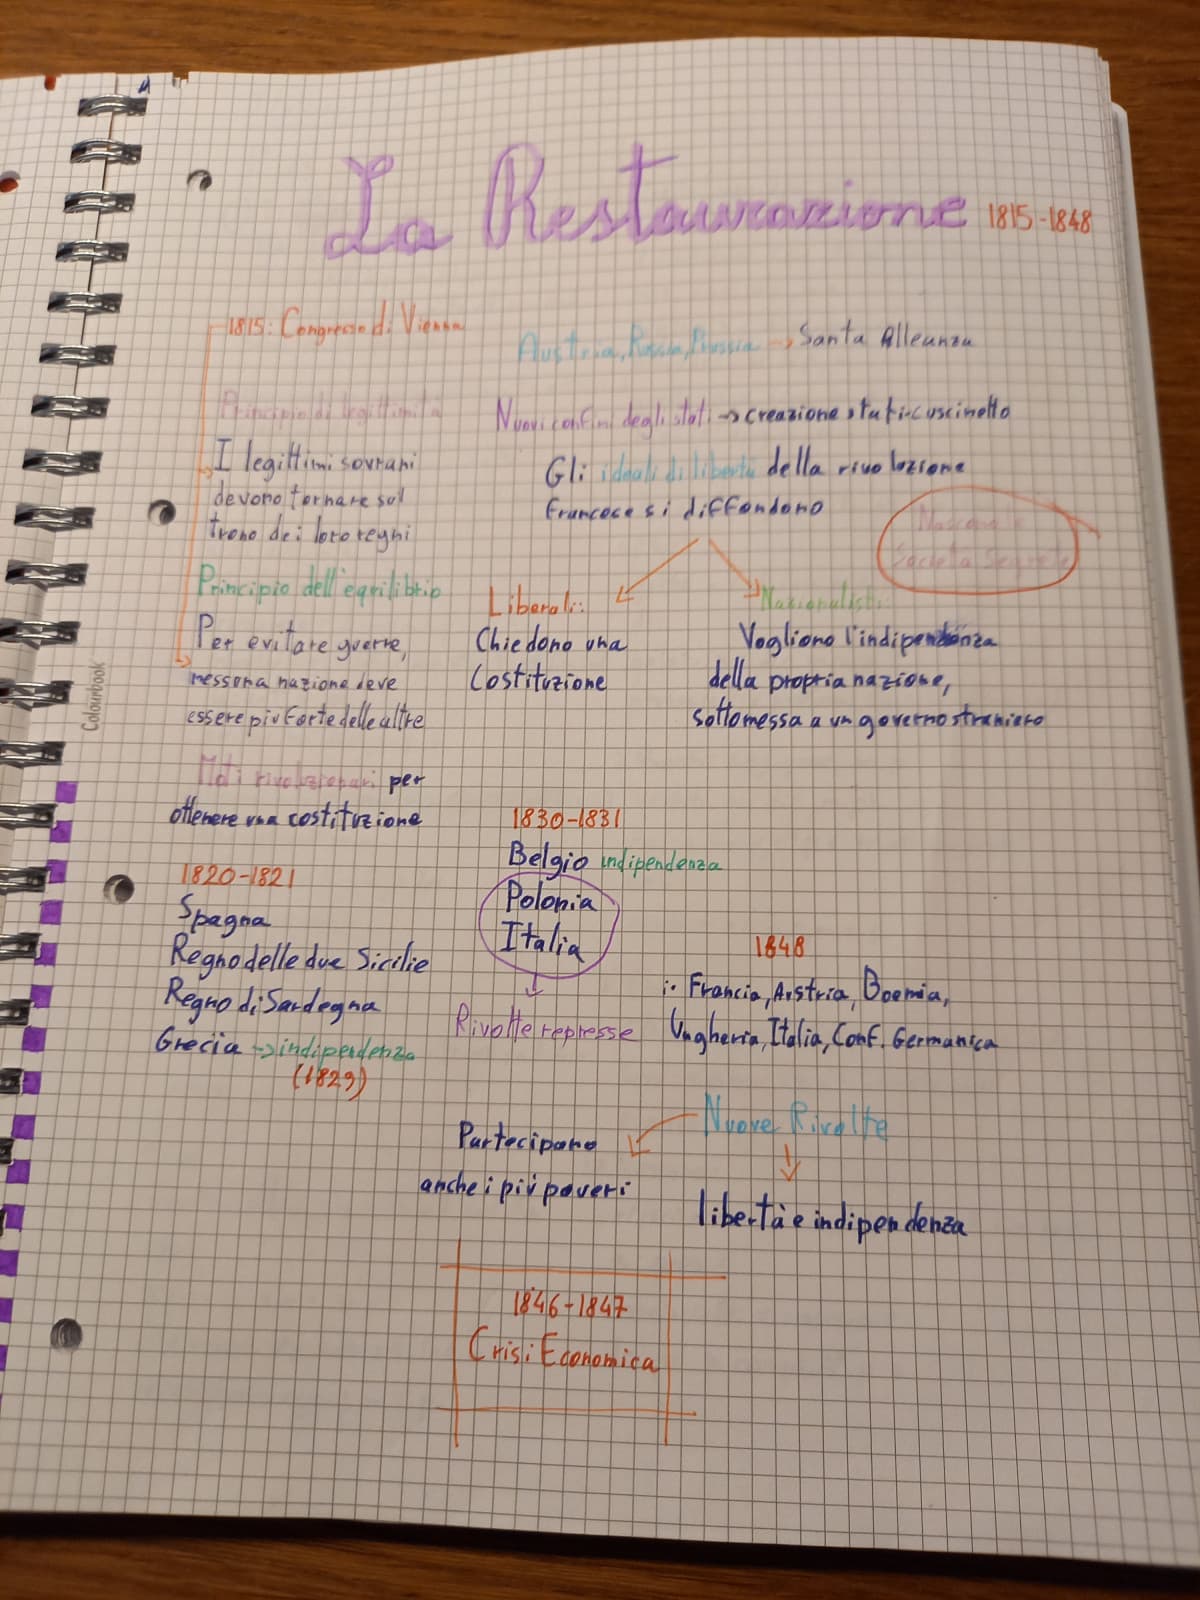 La Restaurazione 1815-1848
1815: Congresso di Vienna
Principio di legittimità
I legittimi sovrani
devono tornare sul
trono dei loro regni
Principio dell'equilibrio
Per evitare guerre,
nessuna nazione deve
essere più forte delle altre
Austria, Russia, Prussia → Santa Alleanza
Nuovi confini degli stati → creazione stati-cuscinetto
Gli ideali di libertà della rivoluzione
francese si diffondono
Nascono le
Società Segrete
Liberali:
Chiedono una
Costituzione
Nazionalisti:
Vogliono l'indipendenza
della propria nazione,
sottomessa a un governo straniero
Moti rivoluzionari per
ottenere una costituzione
1820-1821
Spagna
Regno delle due Sicilie
Regno di Sardegna
Grecia → indipendenza
(1829)
1830-1831
Belgio indipendenza
Polonia
Italia
Rivolte represse
1848
: Francia, Austria, Boemia,
Ungheria, Italia, Conf. Germanica
Nuove Rivolte
Partecipano
anche i più poveri
libertà e indipendenza
1846-1847
Crisi Economica
Colourbook